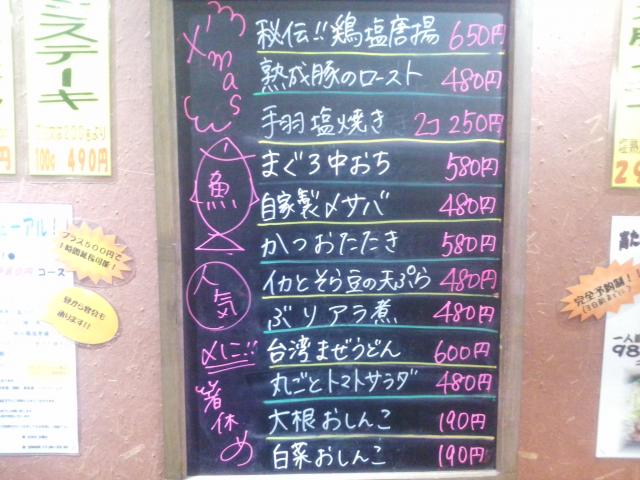 X'mas
秘伝!!鶏塩唐揚 650円
熟成豚のロースト 480円
手羽塩焼き 2コ 250円
魚
まぐろ中おち 580円
自家製〆サバ 480円
かつおたたき 580円
人気
イカとそら豆の天ぷら 480円
ぶりアラ煮 480円
〆に!!
台湾まぜうどん 600円
丸ごとトマトサラダ 480円
箸休め
大根おしんこ 190円
白菜おしんこ 190円
ステーキ
100g 490円
プラス500円で
1時間延長可能!
昼から宴会も
承ります!!
コース
完全予約制!
(3日前まで)